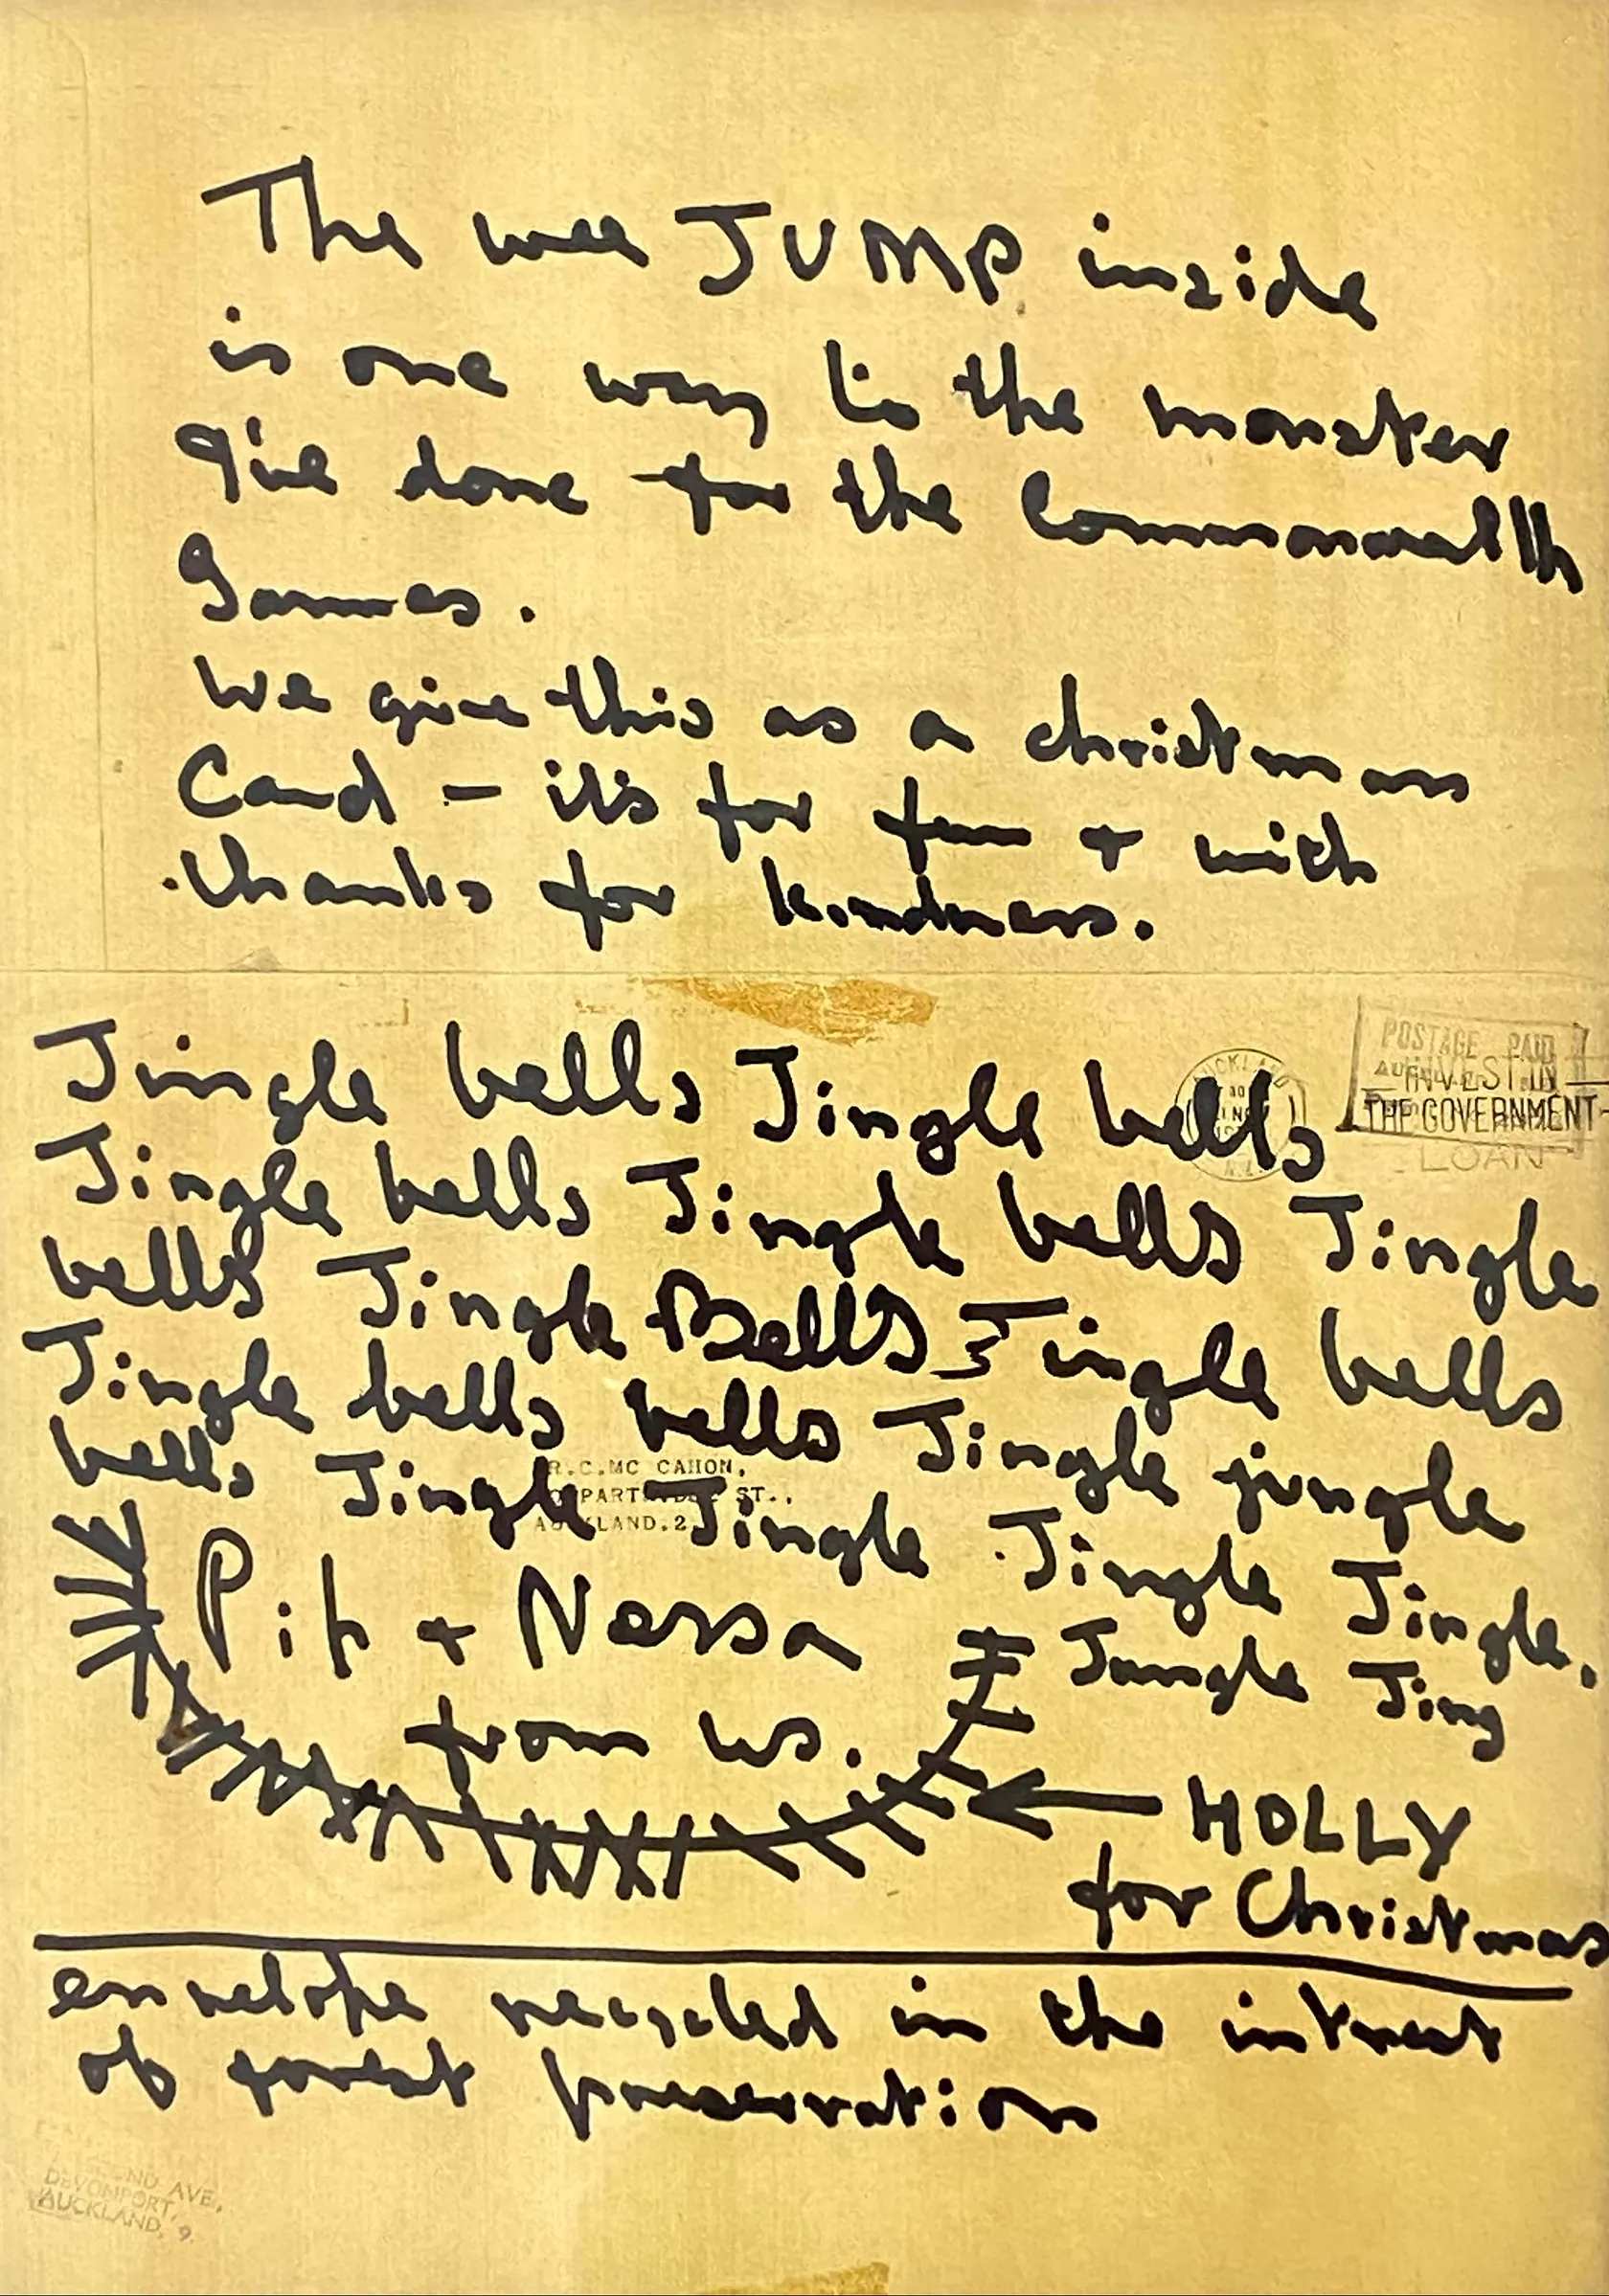 The wee JUMP inside
is one way to the monster
I've done for the Commonwealth
Games.
We give this as a christmas
Card – it's for fun + with
thanks for kindness.
POSTAGE PAID
AUCKLAND
INVEST IN
THE GOVERNMENT
LOAN
Jingle bells Jingle bells
Jingle bells Jingle bells Jingle
bells Jingle Bells Jingle bells
Jingle bells bells Jingle jingle
bells Jingle Jingle Jingle Jingle.
R.C.MC CAHON,
ST.,
AUCKLAND.2.
Pip + Nessa
Jungle Jing
from us.
HOLLY
for Christmas
envelope recycled in the intrest
of forest preservation
AVE,
DEVONPORT,
AUCKLAND, 9.